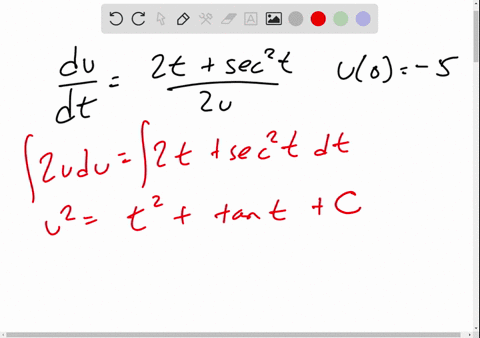 du/dt = (2t + sec²t)/(2u) u(0) = -5
∫2u du = ∫2t + sec²t dt
u² = t² + tan t + C